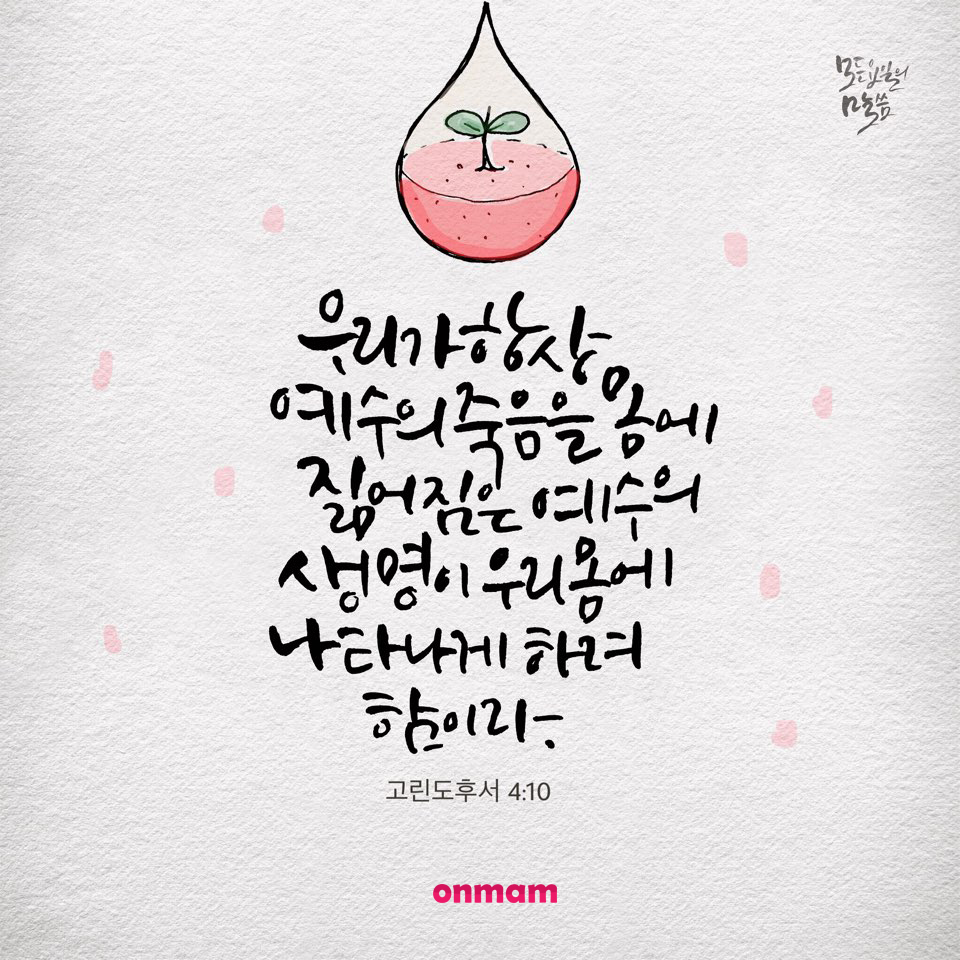 말씀
우리가 항상
예수의 죽음을 몸에
짊어짐은 예수의
생명이 우리 몸에
나타나게 하려
함이라
고린도후서 4:10
onmam